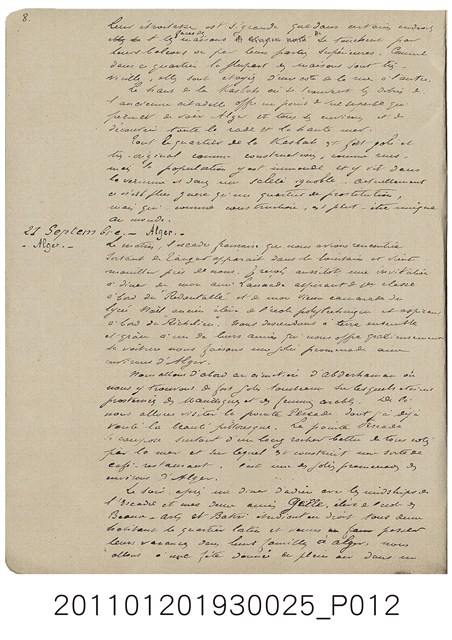 8.
leur étroitesse est si grande que dans certains endroits
les maisons de chaque côté se touchent par
leurs balcons ou par leurs parties supérieures. Comme
dans ce quartier la plupart des maisons sont très
vieilles, elles sont étayées d'un coté de la rue à l'autre.
Le haut de la Kasbah où se trouvent les débris de
l'ancienne citadelle offre un point de vue superbe qui
permet de voir Alger et tous les environs et de
découvrir toute la rade et la haute mer.
Tout le quartier de la Kasbah est fort joli et
très original comme constructions, comme rues
mais la population y est immonde et y vit dans
la vermine et dans une saleté ignoble. Actuellement
ce n'est plus guère qu'un quartier de prostitution,
mais qui comme construction, est peut-être unique
au monde.
21 Septembre. — Alger. —
- Alger. -
Le matin, l'escadre française que nous avions rencontrée
sortant de Tanger apparait dans le lointain et vient
mouiller près de nous. Je reçois aussitôt une invitation
à dîner de mon ami aspirant de 1re classe
à bord du Redoutable et de mon vieux camarade du
lycée Noël ancien élève de l'école polytechnique et aspirant
à bord du Richelieu. Nous descendons à terre ensemble
et grâce à un de leurs amis qui nous offre gracieusement
sa voiture nous faisons une jolie promenade aux
environs d'Alger.
Nous allons d'abord au cimetière d'Abderhaman où
nous y trouvons de fort jolis tombeaux sur lesquels étaient
prosternées des Mauresques et des femmes arabes. De là
nous allons visiter la pointe Pescade dont j'ai déjà
vanté la beauté pittoresque. La pointe Pescade
se compose surtout d'un long rocher battu de tous cotés
par la mer et sur lequel est construit une sorte de
café-restaurant. C'est une des jolies promenades des
environs d'Alger.
Le soir, après un dîner d'adieu avec les midships de
l'Escadre et mes deux amis élève de l'école des
Beaux-Arts et étudiant en droit, tous deux
habitant le quartier latin et venus pour passer
leurs vacances dans leurs familles à Alger, nous
allons à une fête donnée en plein air dans un
201101201930025_P012